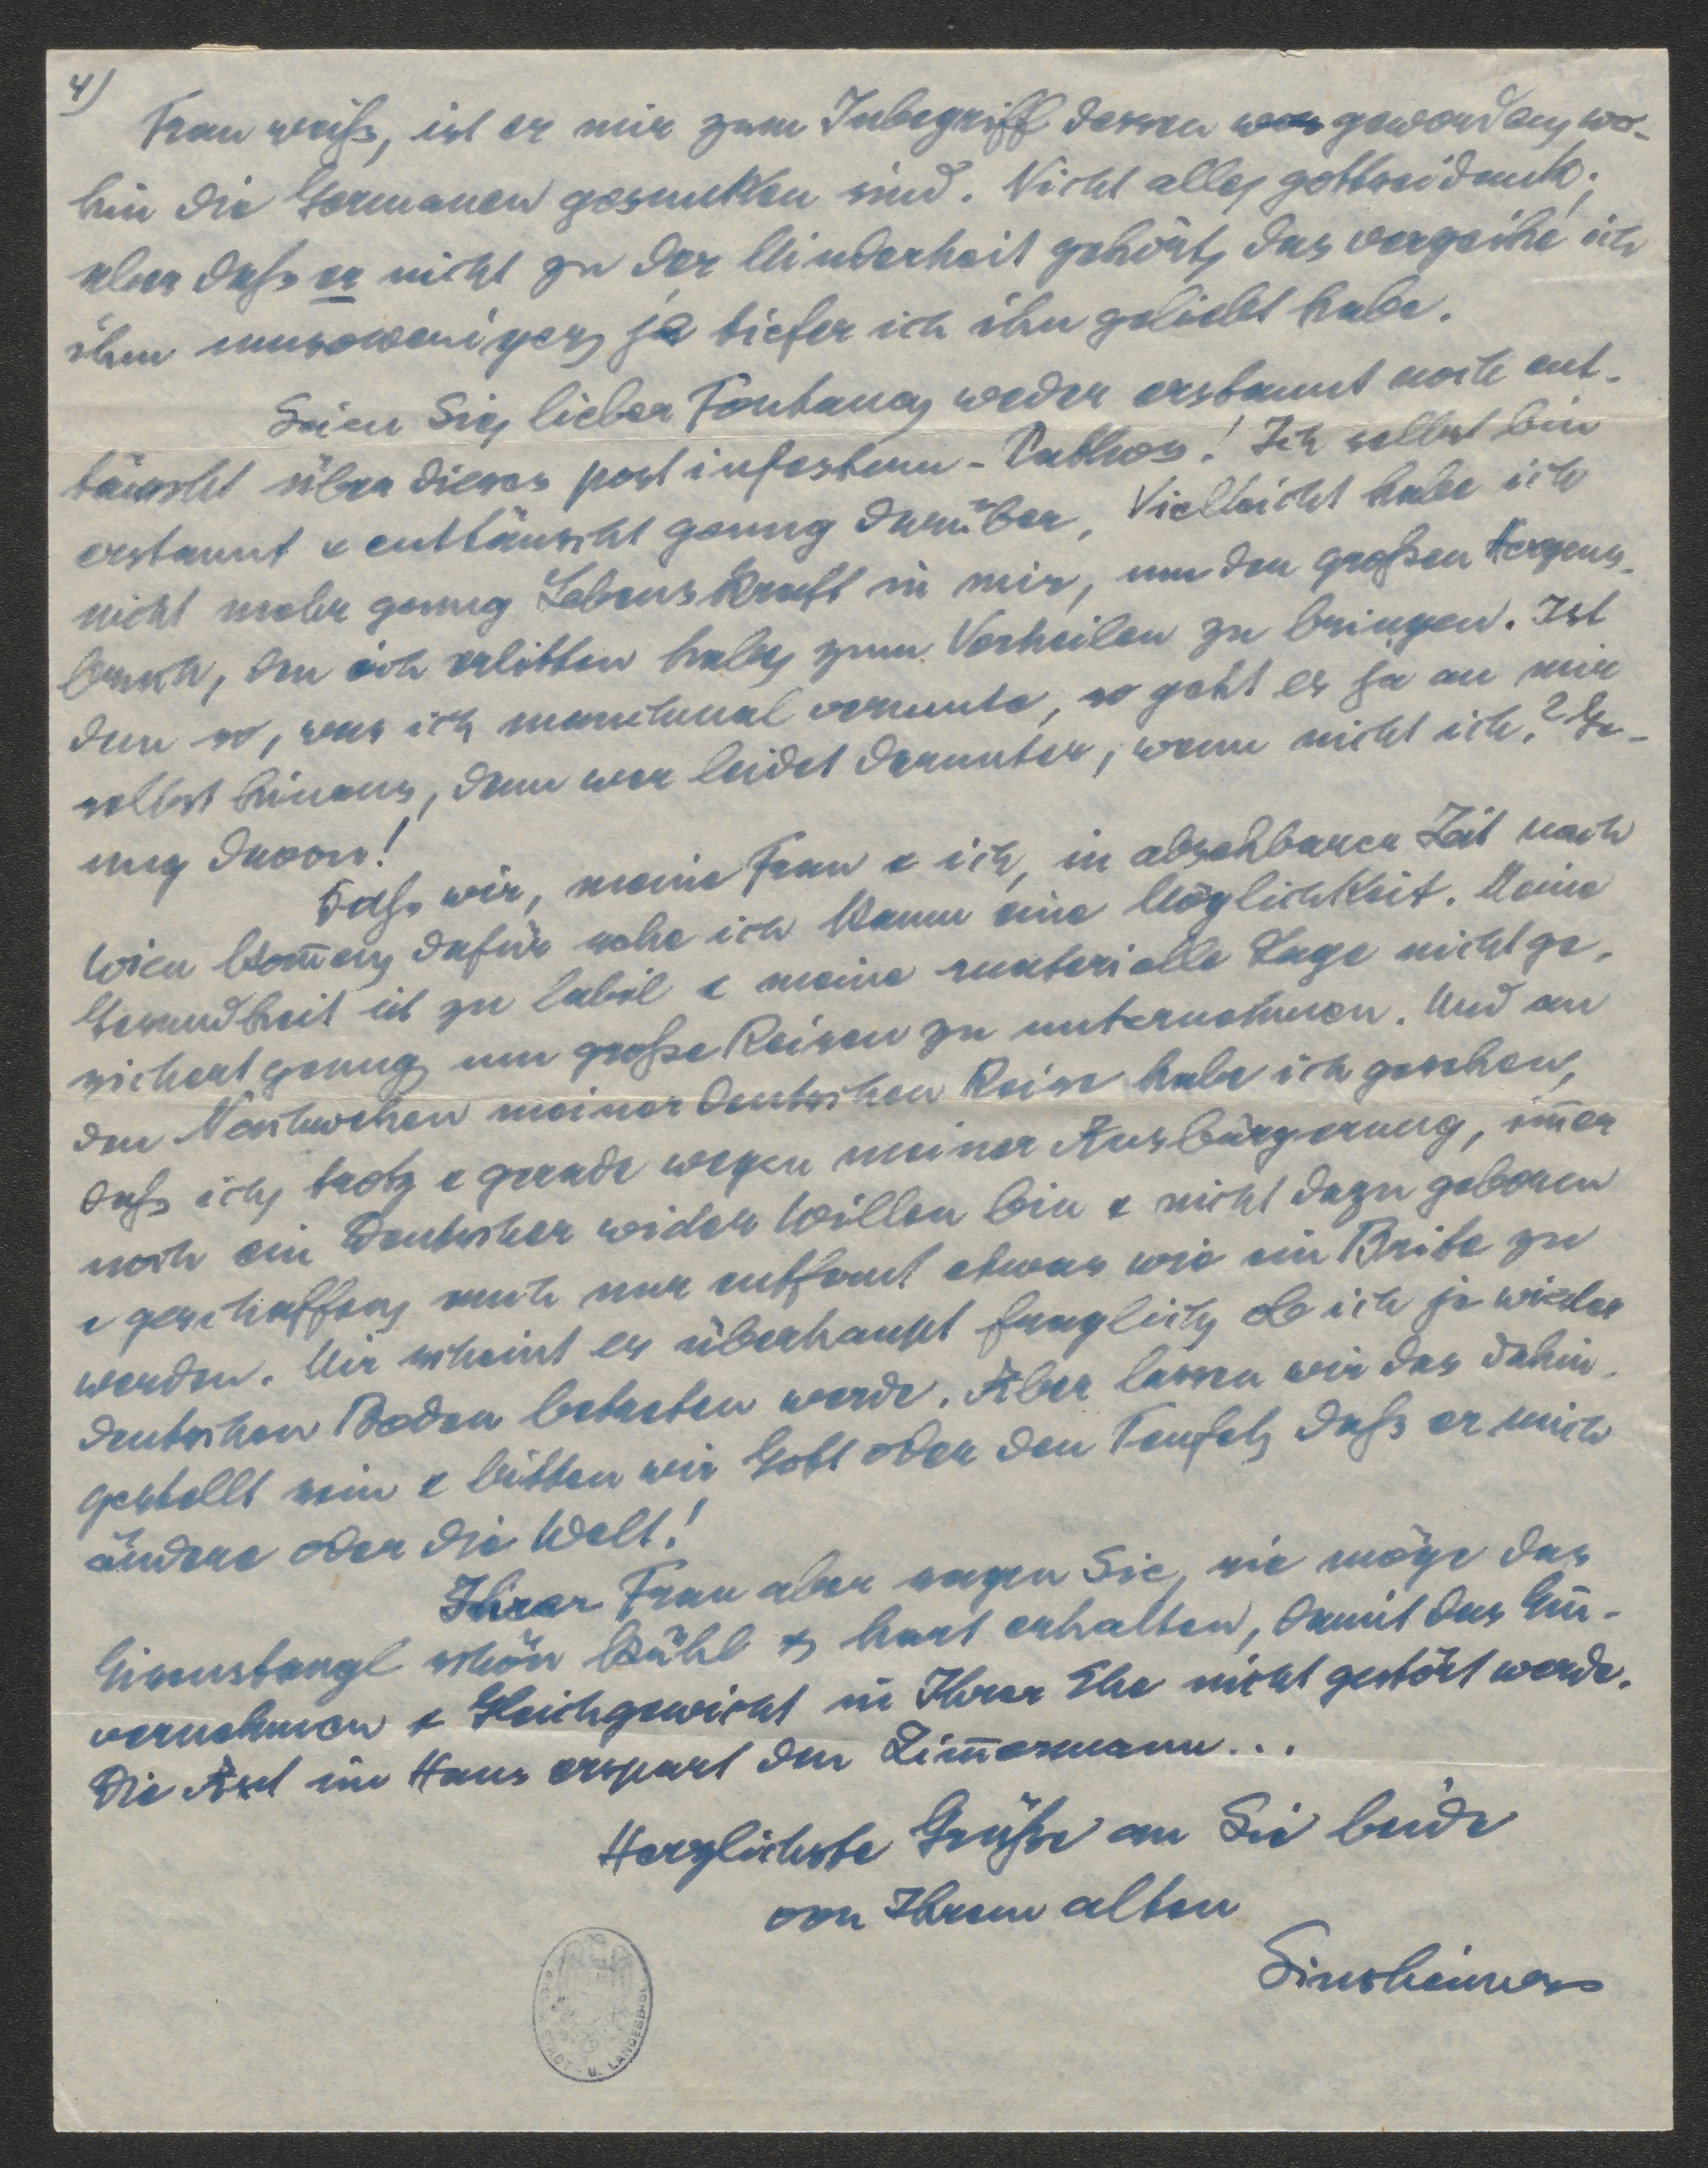 4)
Frau weiß, ist er mir zum Inbegriff dessen geworden, wo-
hin die Germanen gesunken sind. Nicht alle, gottseidank;
aber daß er nicht zu der Minderheit gehört, das verzeihe ich
ihm umsoweniger, je tiefer ich ihn geliebt habe.
Seien Sie, lieber Fontana, weder erstaunt noch ent-
täuscht über dieses post infestum-Pathos! Ich selbst bin
erstaunt & enttäuscht genug darüber. Vielleicht habe ich
nicht mehr genug Lebenskraft in mir, um den großen Herzens-
bruch, den ich erlitten habe, zum Verheilen zu bringen. Ist
dem so, was ich manchmal vermute, so geht es ja an mir
selbst hinaus, denn wer leidet darunter, wenn nicht ich? Ge-
nug davon!
Daß wir, meine Frau & ich, in absehbarer Zeit nach
Wien kom̄en, dafür sehe ich kaum eine Möglichkeit. Meine
Gesundheit ist zu labil & meine materielle Lage nicht ge-
sichert genug, um große Reisen zu unternehmen. Und an
den Nachwehen meiner deutschen Reise habe ich gesehen,
daß ich, trotz & gerade wegen meiner Ausbürgerung, im̄er
noch ein Deutscher wider Willen bin & nicht dazu geboren
& geschaffen, auch nur entfernt etwas wie ein Brite zu
werden. Mir scheint es überhaupt fraglich, ob ich je wieder
deutschen Boden betreten werde. Aber lassen wir das dahin-
gestellt sein & bitten wir Gott oder den Teufel, daß er mich
ändere oder die Welt!
Ihrer Frau aber sagen Sie, sie möge das
Eisenstangl schön kühl & hart erhalten, damit das Ein-
vernehmen & Gleichgewicht in Ihrer Ehe nicht gestört werde.
Die Axt im Haus erspart den Zim̄ermann...
Herzlichste Grüße an Sie beide
von Ihrem alten
Sinsheimer
STADT- U. LANDESBIBL